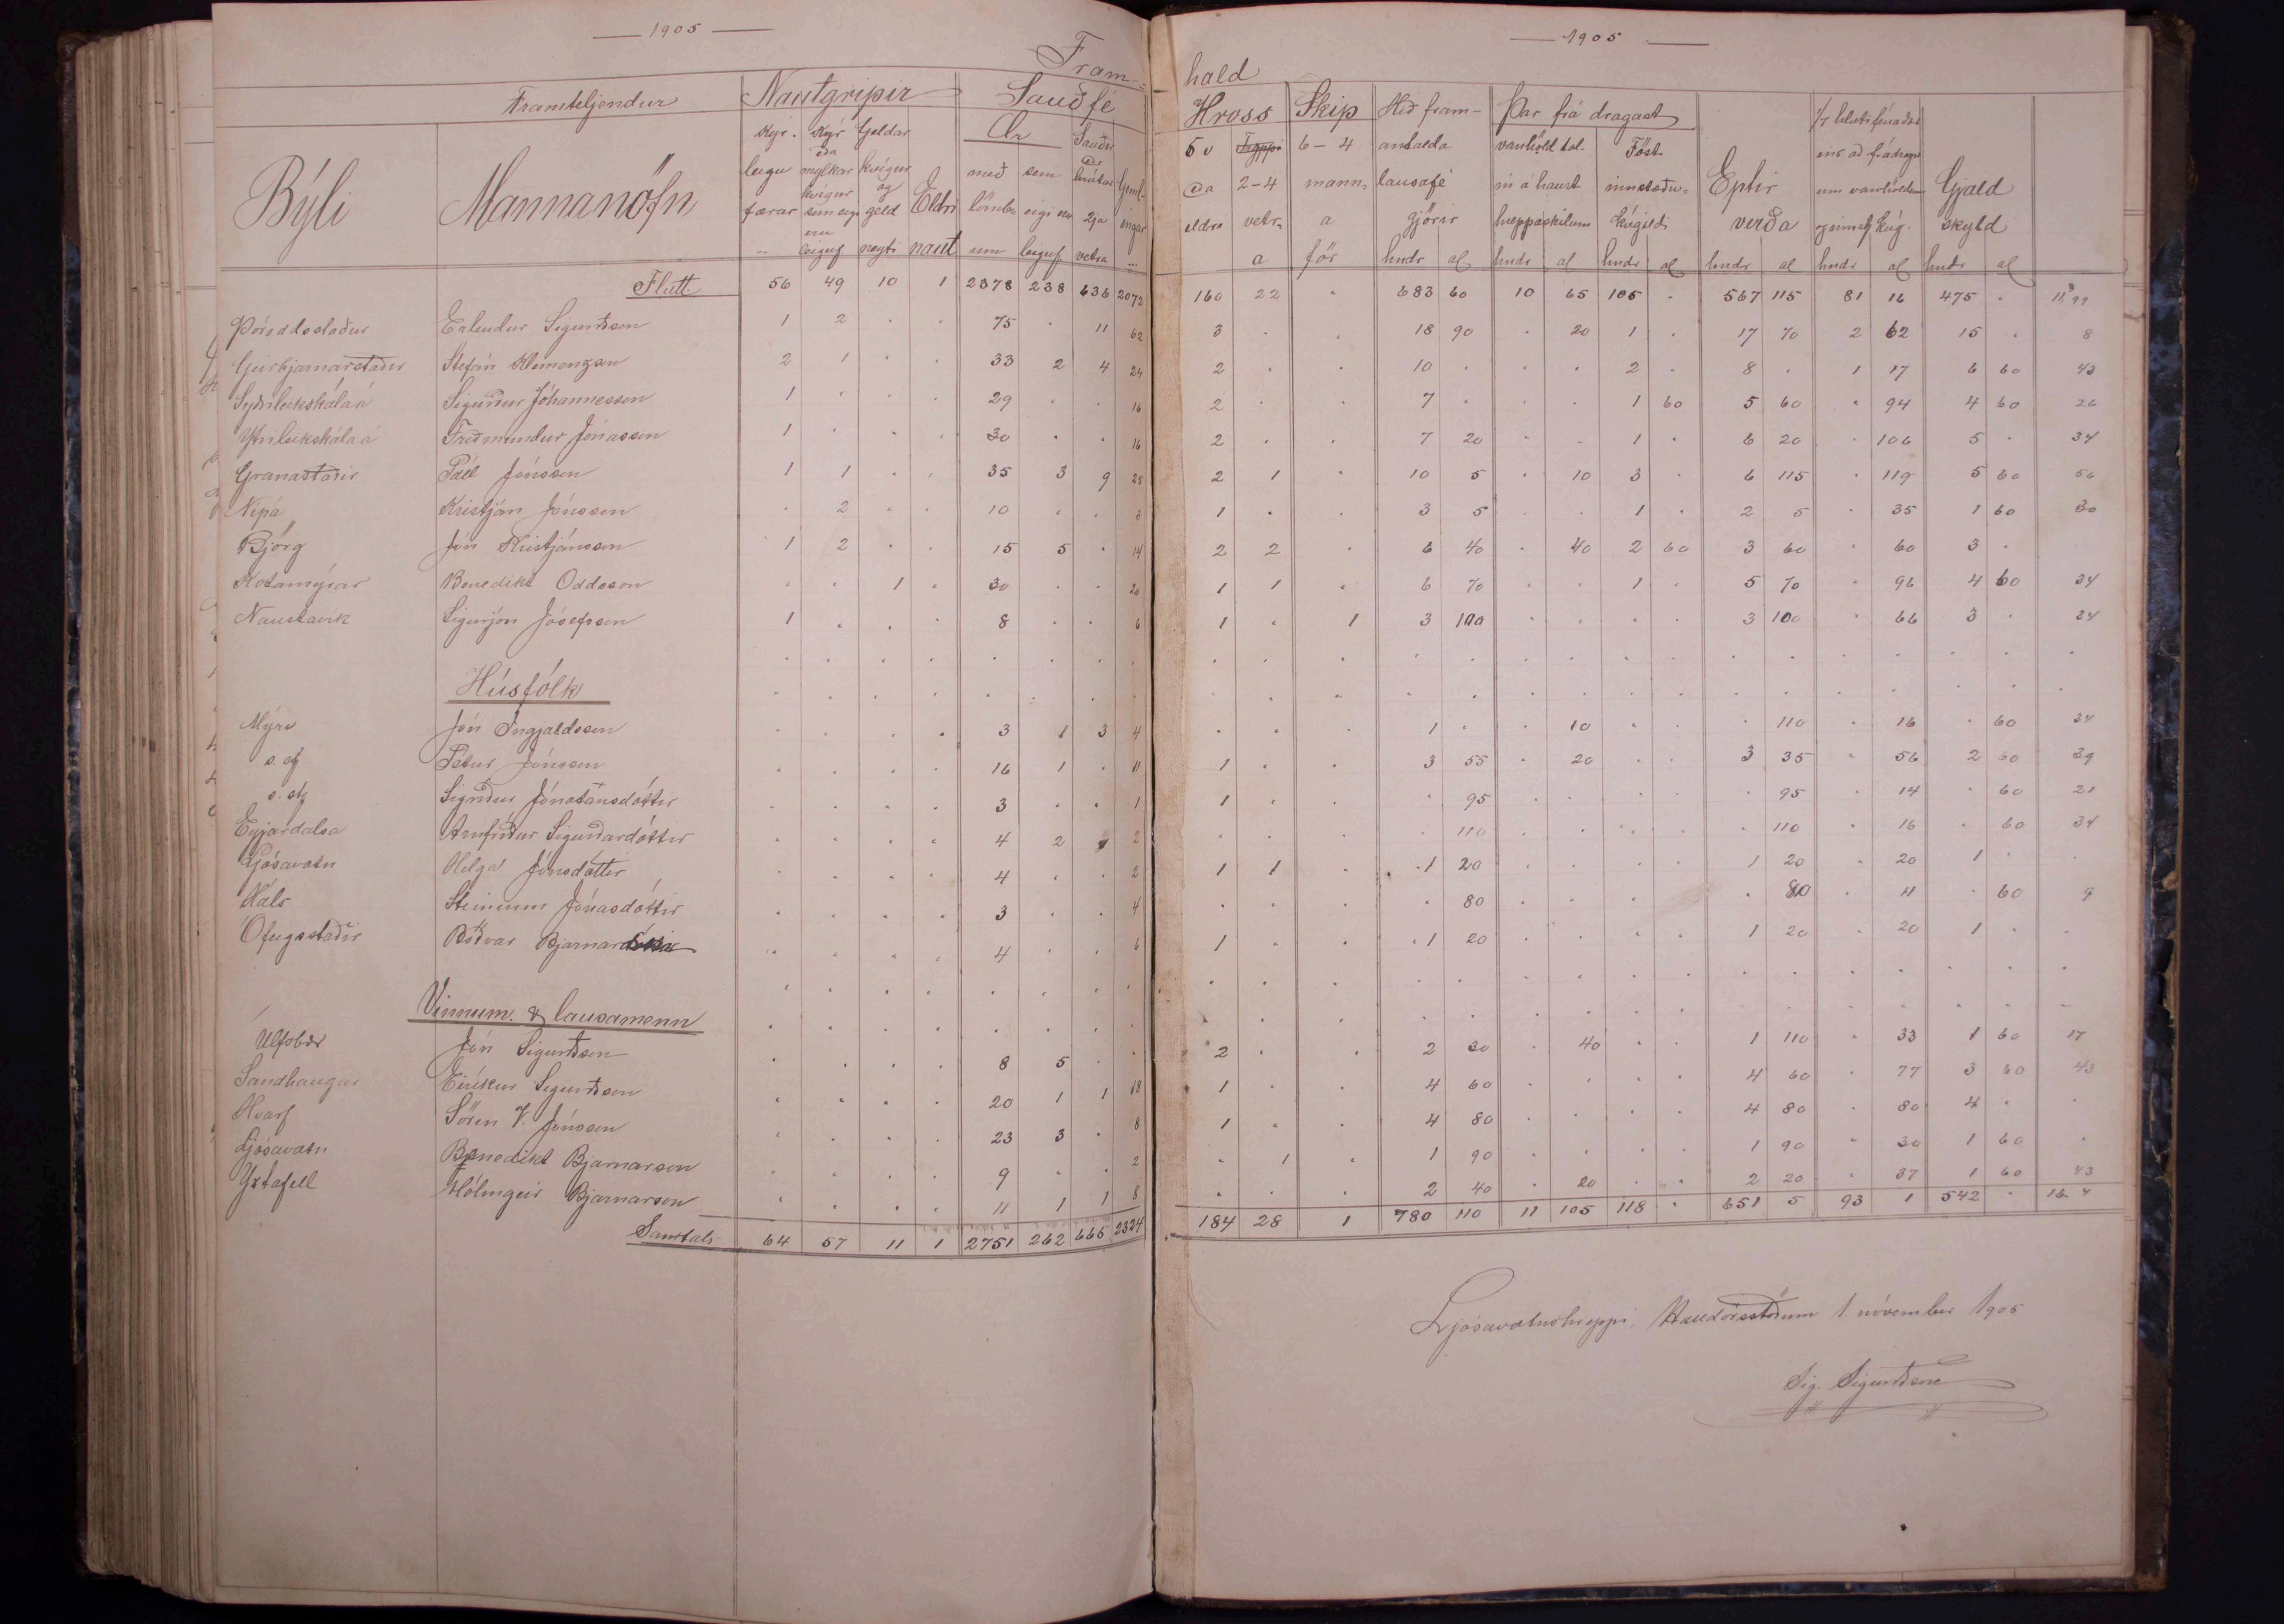 — 1905 —
Fram-
Framteljendur Nautgripir Sauðfé
Kýr. Kýr Geldar Ær Sauðir
leigu eða mylkar kvígur með sem eða hrútar Geml-
Býli Mannanöfn kvígur og Eldri
færar sem eigi geld lömb- eigi eru 2ja ingar
eru leiguf neyti naut um leiguf vetra
Flutt. 56 49 10 1 2378 238 636 2072
Þóroddsstaður Erlendur Sigurðsson 1 2 . . 75 . 11 62
Geirbjarnarstaðir Stefán Klemenzson 2 1 . . 33 2 4 24
Syðrileikskálaá Sigurður Jóhannesson 1 . . . 29 . . 16
Ytrileikskálaá Friðmundur Jónasson 1 . . . 30 . . 16
Granastaðir Páll Jónsson 1 1 . . 35 3 9 25
Nípá Kristján Jónsson . 2 . . 10 . . 3
Björg Jón Kristjánsson 1 2 . . 15 5 . 14
Kotamýrar Benedikt Oddsson . . 1 . 30 . . 20
Naustavík Sigurjón Jósefsson 1 . . . 8 . . 6
Húsfólk
Mýri Jón Ingjaldsson . . . . 3 1 3 4
s. st Pétur Jónsson . . . . 16 1 . 11
s. st Sigríður Jónatansdóttir . . . . 3 . . 1
Eyjardalsá Arnfríður Sigurðardóttir . . . . 4 2 . 2
Ljósavatn Helga Jónsdóttir . . . . 4 . . 2
Háls Steinunn Jónasdóttir . . . . 3 . . 4
Ófeigsstaðir Böðvar Bjarnar . . . . 4 . . 6
Vinnum. & lausamenn
Úlfsbær Jón Sigurðsson . . . . 8 5 . .
Sandhaugar Eiríkur Sigurðsson . . . . 20 1 1 18
Hvarf Sören V. Jónsson . . . . 23 3 . 8
Ljósavatn Benedikt Bjarnarson . . . . 9 . . 2
Ystafell Hólmgeir Bjarnarson . . . . 11 1 1 8
Samtals 64 57 11 1 2751 262 665 2324
— 1905 —
hald
Hross Skip Hið fram- Þar frá dragast 1/7 hluti fénaðar
5 v 6-4 antalda vanhöld tal- Föst eins að frádregnum
eða 2-4 mann- lausafé in á haust innstæðu- Eptir um vanhöldum Gjald
eldri vetr- a gjörir hreppaskilum kúgildi verða og innst kúg. skyld
a för hndr al hndr al hndr al hndr al hndr al hndr al
160 22 . 683 60 10 65 105 . 567 115 81 16 475 . 11 99
3 . . 18 90 . 20 1 . 17 70 2 62 15 . 8
2 . . 10 . . . 2 . 8 . 1 17 6 60 43
2 . . 7 . . . 1 60 5 60 . 94 4 60 26
2 . . 7 20 . . 1 . 6 20 . 106 5 . 34
2 1 . 10 5 . 10 3 . 6 115 . 119 5 60 56
1 . . 3 5 . . 1 . 2 5 . 35 1 60 30
2 2 . 6 40 . 40 2 60 3 60 . 60 3 . .
1 1 . 6 70 . . 1 . 5 70 . 96 4 60 34
1 . 1 3 100 . . . . 3 100 . 66 3 . 24
. . . 1 . . 10 . . . 110 . 16 . 60 34
1 . . 3 55 . 20 . . 3 35 . 56 2 60 39
1 . . . 95 . . . . . 95 . 14 . 60 21
. . . . 110 . . . . . 110 . 16 . 60 34
1 1 . 1 20 . . . . 1 20 . 20 1 . .
. . . . 80 . . . . . 80 . 11 . 60 9
1 . . 1 20 . . . . 1 20 . 20 1 . .
2 . . 2 30 . 40 . . 1 110 . 33 1 60 17
1 . . 4 60 . . . . 4 60 . 77 3 60 43
1 . . 4 80 . . . . 4 80 . 80 4 . .
. 1 . 1 90 . . . . 1 90 . 30 1 60 .
. . . 2 40 . 20 . . 2 20 . 37 1 60 43
184 28 1 780 110 11 105 118 . 651 5 93 1 542 . 16. 4
Ljósavatnshreppi, Halldórsstöðum 1 nóvember 1905
Sig. Sigurðsson